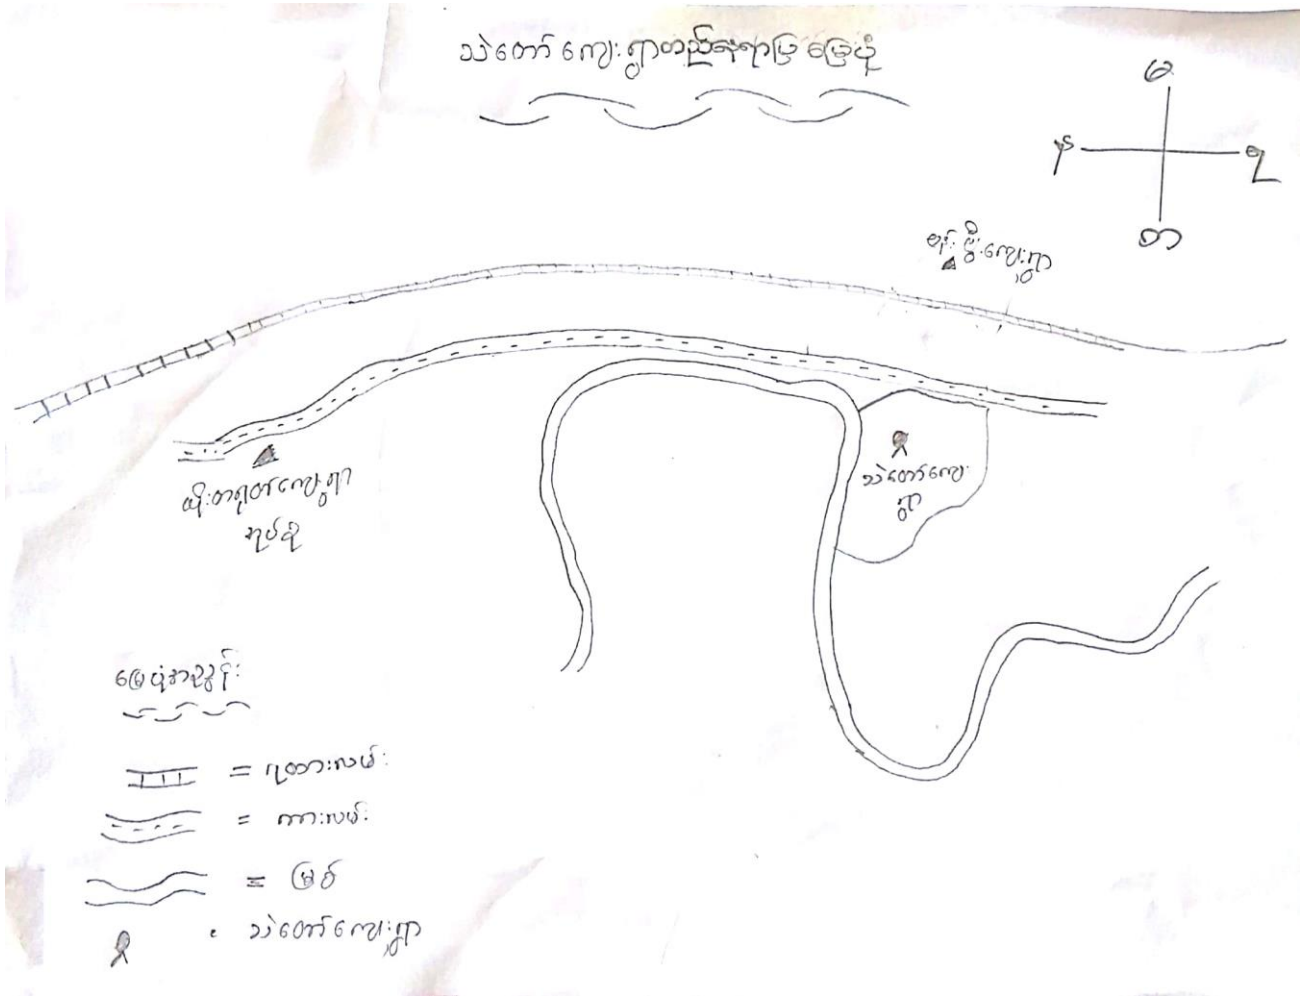 သဲတော် ကျေးရွာတည်နေရာပြ မြေပုံ
မ
န
ရ
တ
ကျေးရွာ
သဲတော်ကျေး
ရွာ
ကျေးရွာ
အုပ်စု
မြေပုံအညွှန်း
= ရထားလမ်း
= ကားလမ်း
= မြစ်
သဲတော်ကျေးရွာ